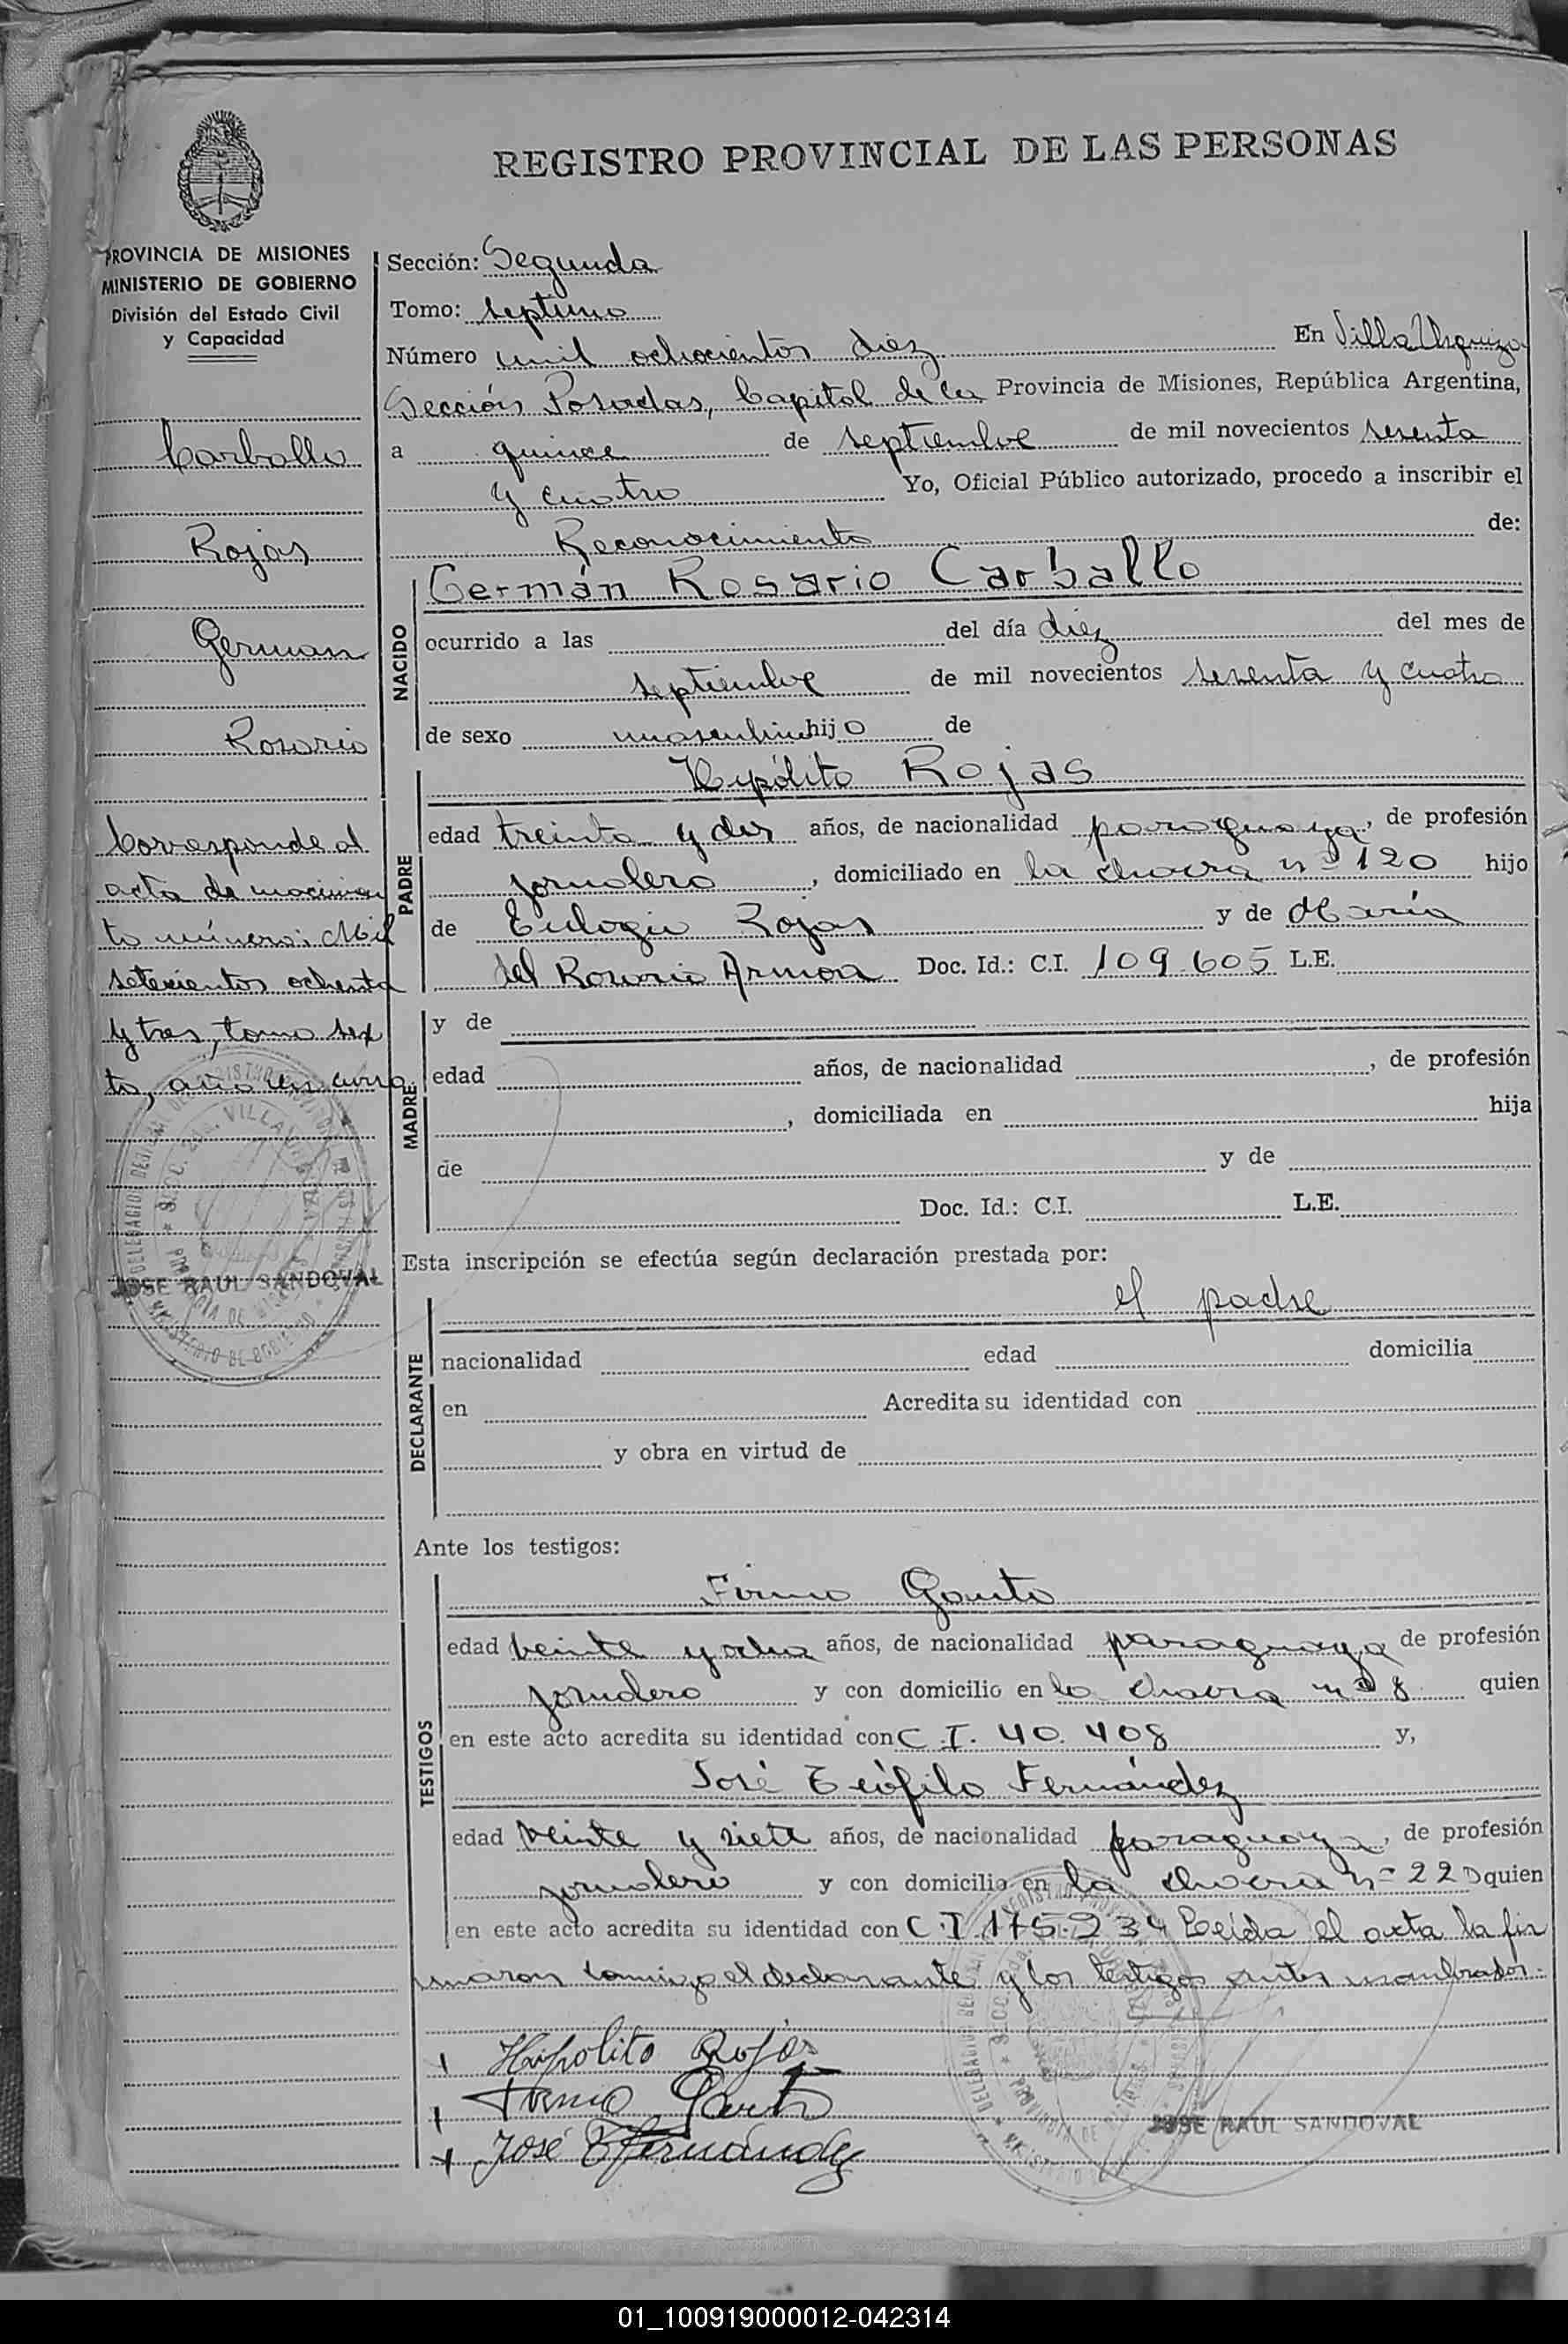 REGISTRO PROVINCIAL DE LAS PERSONAS
PROVINCIA DE MISIONES
MINISTERIO DE GOBIERNO
División del Estado Civil
y Capacidad
Carballo
Rojas
German
Rosario
Corresponde al
acta de nacimien
to número: Mil
setecientos ochenta
y tres, tomo sex
to, año en curso
JOSE RAUL SANDOVAL
Sección: Segunda
Tomo: septimo
Número mil ochocientos diez En Villa Urquiza
Sección Posadas, Capital de la Provincia de Misiones, República Argentina,
a quince de septiembre de mil novecientos sesenta
y cuatro Yo, Oficial Público autorizado, procedo a inscribir el
Reconocimiento de:
NACIDO
Germán Rosario Carballo
ocurrido a las del día diez del mes de
septiembre de mil novecientos sesenta y cuatro
de sexo masculino hijo de
PADRE
Hipólito Rojas
edad treinta y dos años, de nacionalidad paraguaya, de profesión
jornalero, domiciliado en la chacra nº 120 hijo
de Eulogio Rojas y de María
del Rosario Armoa Doc. Id.: C.I. 109.605 L.E.
MADRE
y de
edad años, de nacionalidad , de profesión
, domiciliada en hija
de y de
Doc. Id.: C.I. L.E.
Esta inscripción se efectúa según declaración prestada por:
DECLARANTE
el padre
nacionalidad edad domicilia
en Acredita su identidad con
y obra en virtud de
Ante los testigos:
TESTIGOS
Firmo Gauto
edad veinte y ocho años, de nacionalidad paraguaya de profesión
jornalero y con domicilio en la chacra nº 8 quien
en este acto acredita su identidad con C.I. 40.408 y,
José Teófilo Fernández
edad veinte y siete años, de nacionalidad paraguaya, de profesión
jornalero y con domicilio en la chacra nº 22 quien
en este acto acredita su identidad con C.I. 175.234 Leída el acta la fir
maron conmigo el declarante y los testigos antes nombrados.
Hipolito Rojas
Firmo Gauto
José T Fernández
JOSE RAUL SANDOVAL
01_100919000012-042314